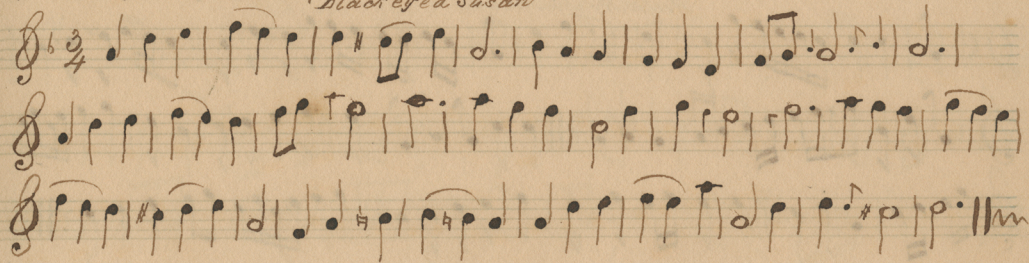 Black eyed Susan
3
4